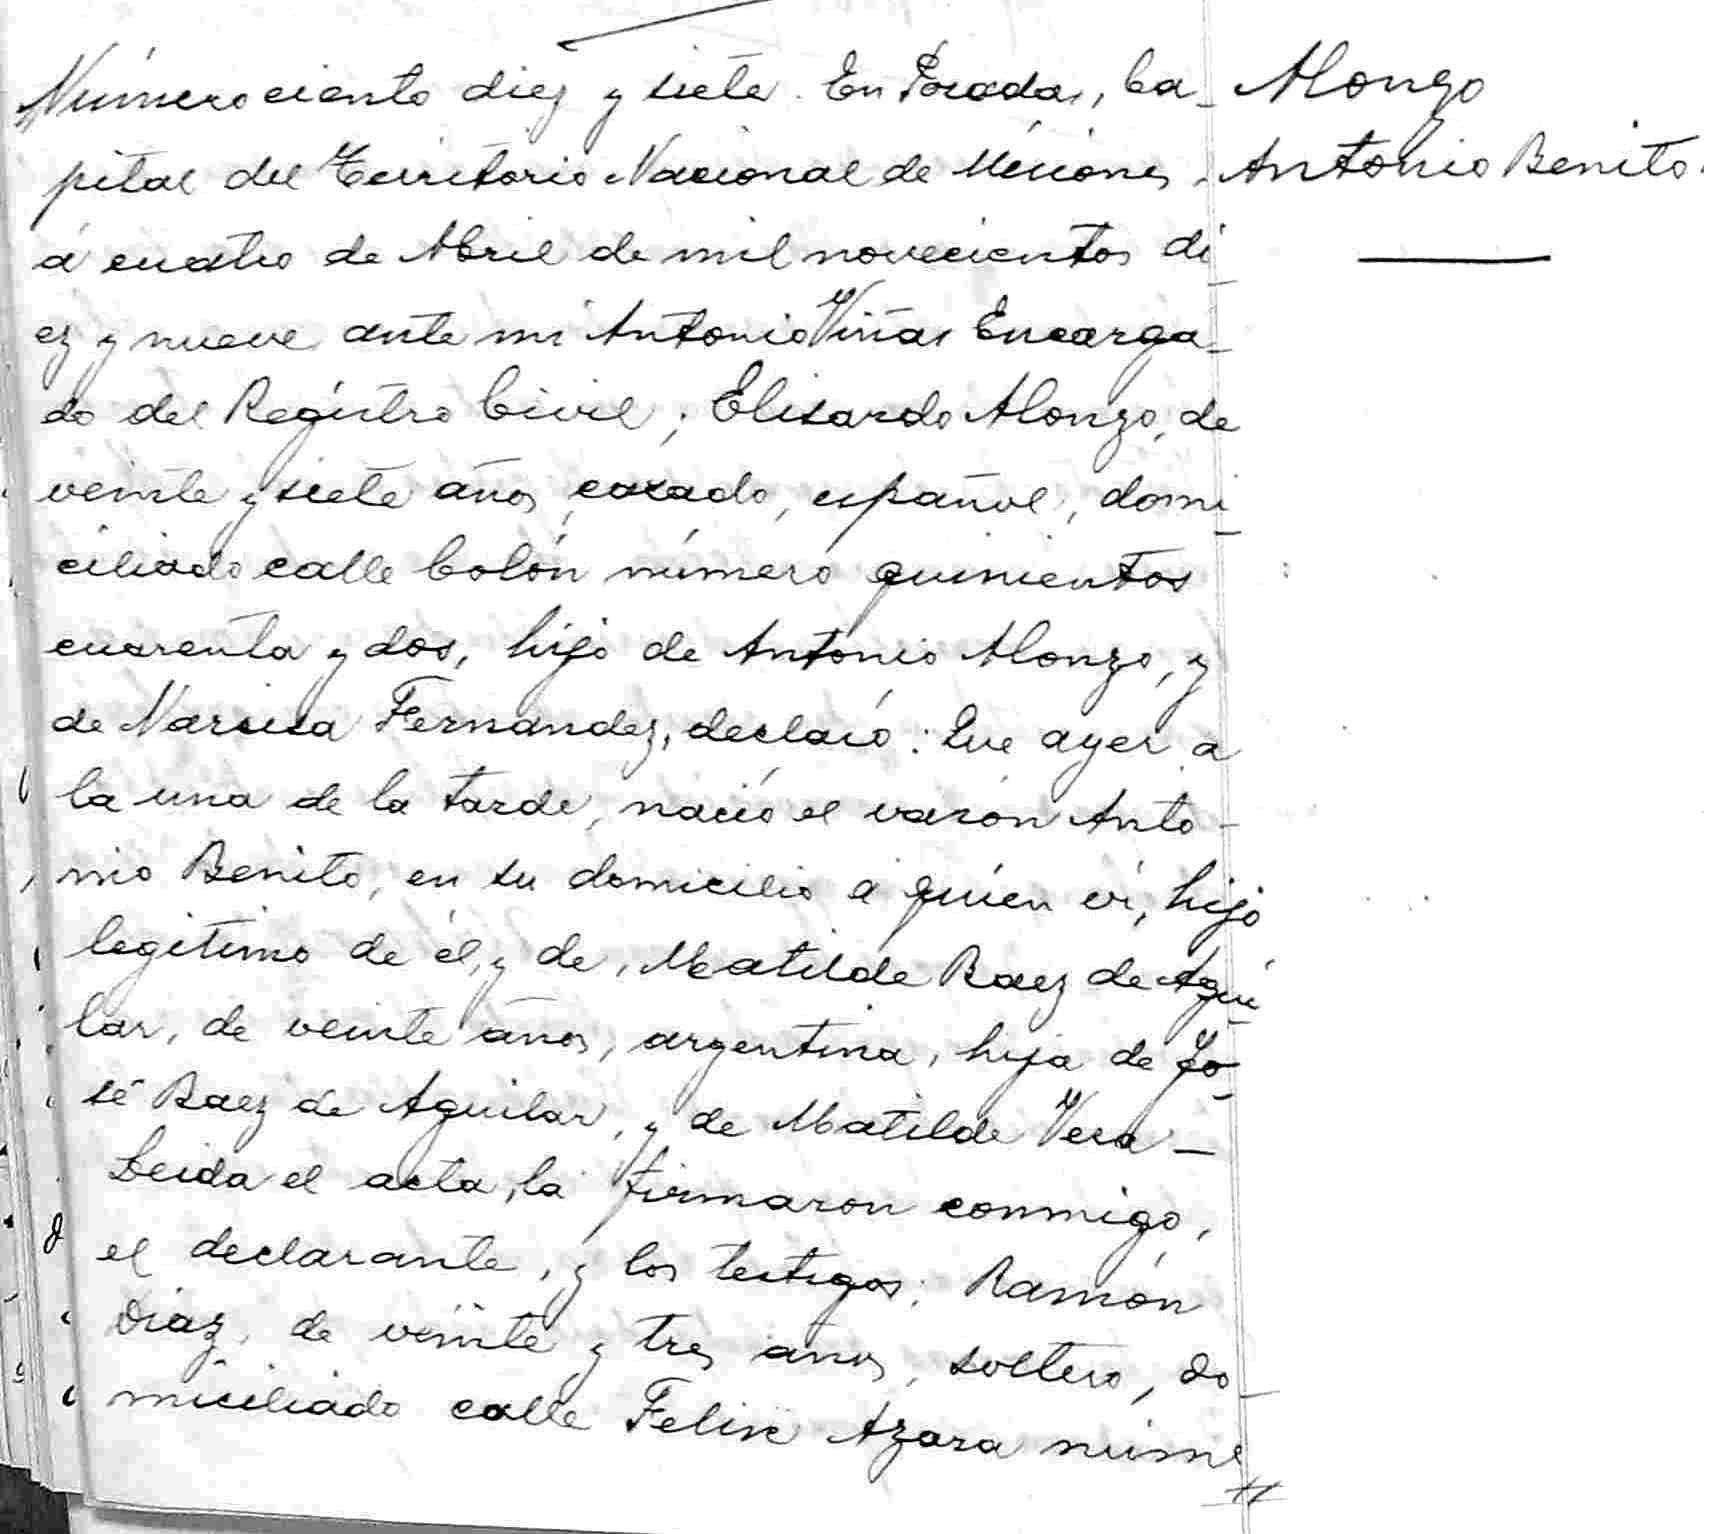 Número ciento diez y siete. En Posadas, Ca-
pital del Territorio Nacional de Misiones,
á cuatro de Abril de mil novecientos di-
ez y nueve ante mi Antonio Viñas Encarga-
do del Registro Civil; Elisardo Alonzo, de
veinte y siete años, casado, español, domi-
ciliado calle Colón número quinientos
cuarenta y dos, hijo de Antonio Alonzo, y
de Narcisa Fernandez, declaró: Que ayer a
la una de la tarde, nació el varón Anto-
nio Benito, en su domicilio a quien ví, hijo
legítimo de él, y de, Matilde Baez de Agui-
lar, de veinte años, argentina, hija de Jo-
sé Baez de Aguilar, y de Matilde Vera-
Leida el acta, la firmaron conmigo,
el declarante, y los testigos; Ramón
Diaz, de veinte y tres años, soltero, do-
miciliado calle Felix Azara núme
Alonzo
Antonio Benito.